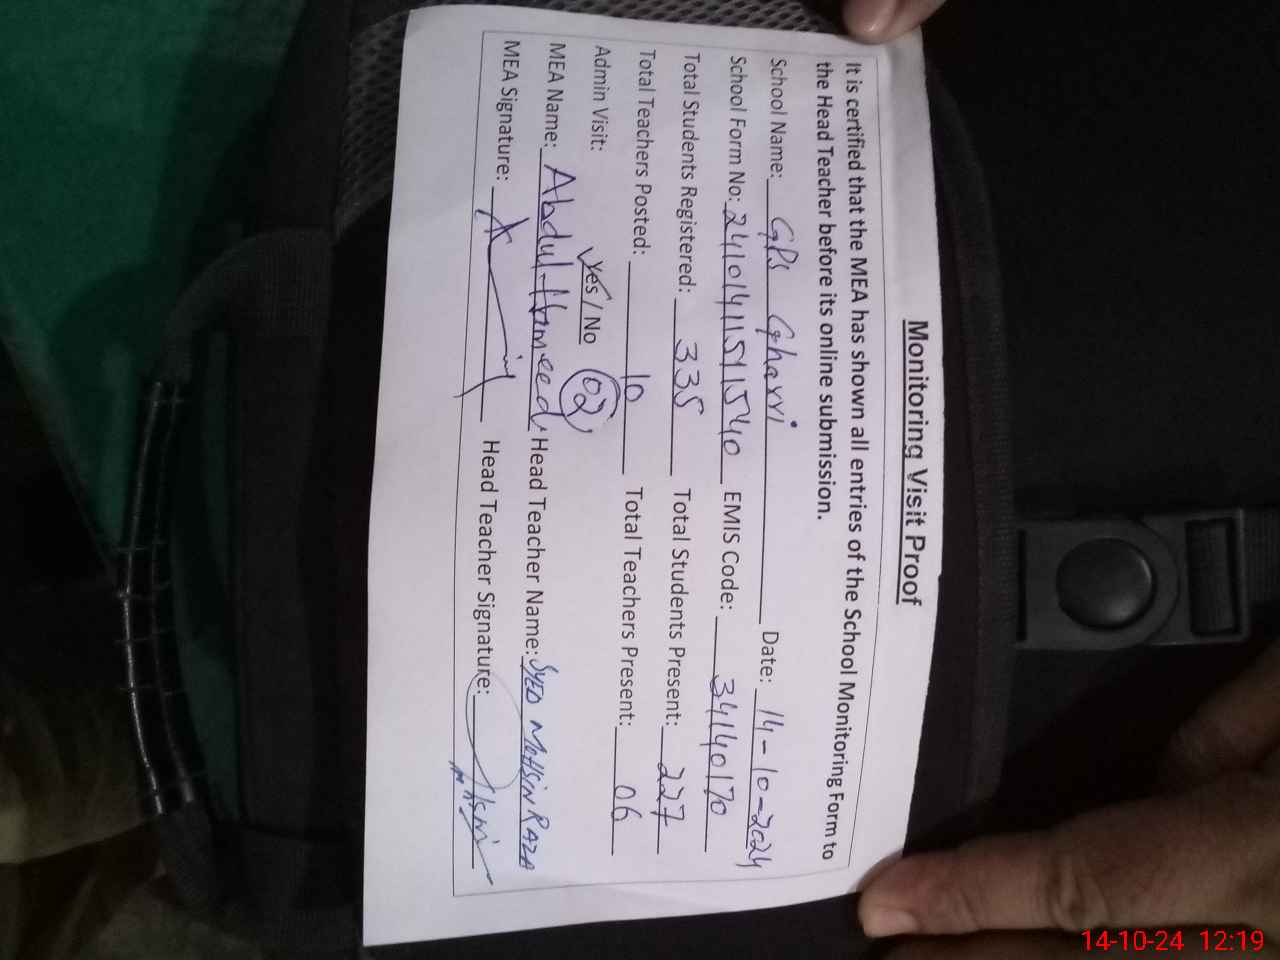 Monitoring Visit Proof
It is certified that the MEA has shown all entries of the School Monitoring Form to
the Head Teacher before its online submission.
School Name: GPS Gharvi Date: 14-10-2024
School Form No: 24101411511540 EMIS Code: 34140170
Total Students Registered: 335 Total Students Present: 227
Total Teachers Posted: 10 Total Teachers Present: 06
Admin Visit: Yes / No 02
MEA Name: Abdul Hameed Head Teacher Name: SYED MOHSIN RAZA
MEA Signature: Head Teacher Signature:
14-10-24 12:19